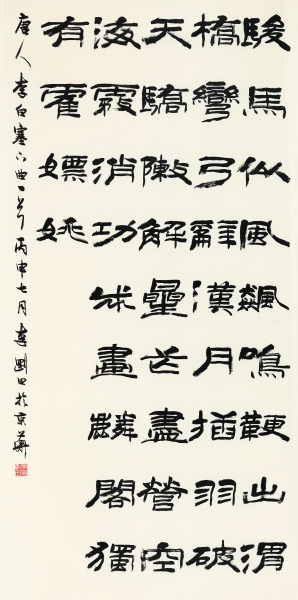 駿馬似風飆鳴鞭出渭
橋彎弓辭漢月插羽破
天驕敶解星芒盡營空
海霧消功成畫麟閣獨
有霍嫖姚
唐人李白塞下曲一首丙申七月李剛田於京華